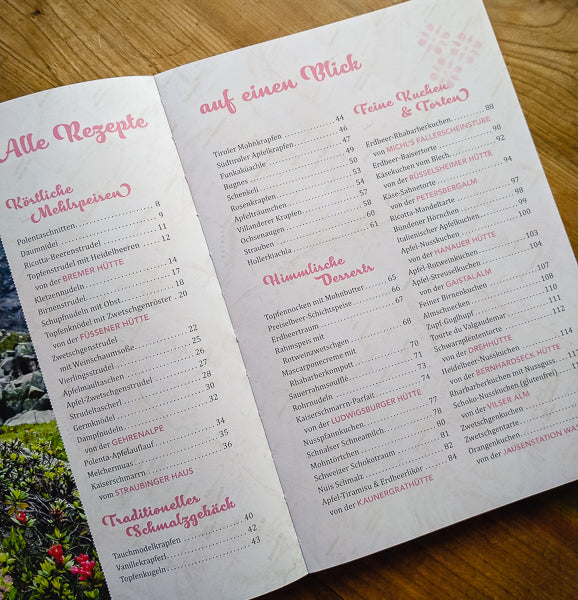 Alle Rezepte
Köstliche
Mehlspeisen
Polentaschnitten 8
Daunnidel 9
Ricotta-Beerenstrudel 11
Topfenstrudel mit Heidelbeeren 12
von der BREMER HÜTTE
Kletzennudeln 14
Birnenstrudel 17
Schupfnudeln mit Obst 18
Topfenknödel mit Zwetschgenröster 20
von der FÜSSENER HÜTTE
Zwetschgenstrudel
mit Weinschaumsoße 22
Vierlingsstrudel 25
Apfelmaultaschen 26
Apfel-Zwetschgenstrudel 27
Strudeltascherl 28
Germknödel 30
Dampfnudeln 32
von der GEHRENALPE
Polenta-Apfelauflauf 34
Melchermuas 35
Kaiserschmarrn 36
vom STRAUBINGER HAUS
Traditionelles
Schmalzgebäck
Tauchmodelkrapfen 40
Vanillekrapferl 42
Topfenkugeln 43
auf einen Blick
Tiroler Mohnkrapfen 44
Südtiroler Apfelkrapfen 46
Funkakuachle 47
Bugnes 49
Schenkeli 50
Rosenkrapfen 53
Apfelträumchen 54
Villanderer Krapfen 57
Ochsenaugen 58
Strauben 60
Hollerkiachla 61
Himmlische
Desserts
Topfennocken mit Mohnbutter 65
Preiselbeer-Schichtspeise 66
Erdbeertraum 67
Rahmspeis mit
Rotweinzwetschgen 68
Mascarponecreme mit
Rhabarberkompott 70
Sauerrahmsoufflé 71
Rohrnudeln 73
Kaiserschmarrn-Parfait 74
von der LUDWIGSBURGER HÜTTE
Nusspfannkuchen 77
Schnalser Schneamilch 78
Mohntörtchen 80
Schweizer Schokotraum 81
Nuis Schmalz 82
Apfel-Tiramisu & Erdbeerlikör 84
von der KAUNERGRATHÜTTE
Feine Kuchen
& Torten
Erdbeer-Rhabarberkuchen 88
von MICHL'S FALLERSCHEINSTUBE
Erdbeer-Baisertorte 90
Käsekuchen vom Blech 92
von der RÜSSELSHEIMER HÜTTE
Käse-Sahnetorte 94
von der PETERSBERGALM
Ricotta-Mandeltarte 97
Bündener Hörnchen 98
Italienischer Apfelkuchen 99
Apfel-Nusskuchen
von der HANAUER HÜTTE
Apfel-Rotweinkuchen 103
Apfel-Streuselkuchen 104
von der GAISTALALM
Feiner Birnenkuchen 107
Almschnecken 108
Zupf-Guglhupf 110
Tourte du Valgaudemar 111
Schwarzplententorte 112
von der DREHHÜTTE
Heidelbeer-Nusskuchen
von der BERNHARDSECK HÜTTE
Rhabarberkuchen mit Nussguss
Schoko-Nusskuchen (glutenfrei)
von der VILSER ALM
Zwetschgenkuchen
Zwetschgentarte
Orangenkuchen
von der JAUSENSTATION